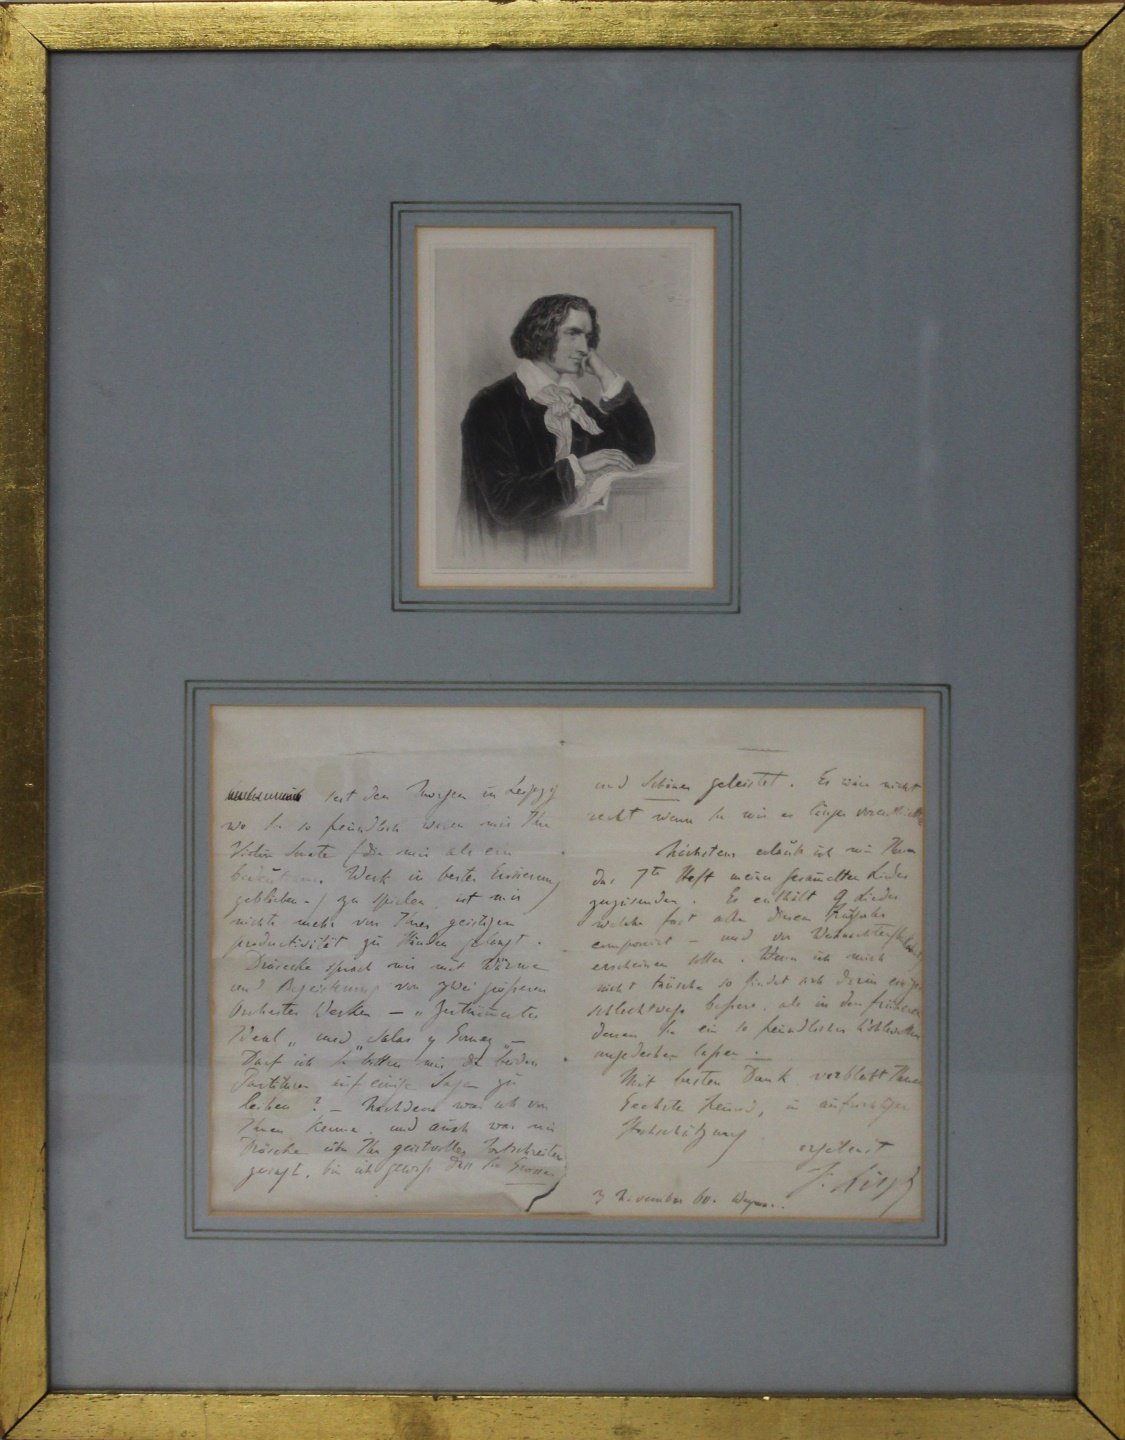 seit dem Morgen in Leipzig
wo Sie so freundlich waren mir Ihre
Violin Sonate (die mir als ein
Werk in bester Erinnerung
geblieben –) zu spielen, ist mir
nichts mehr von Ihrer geistigen
productivität zu Händen gelangt.
Dräseke sprach mir mit Wärme
und Begeisterung von zwei größeren
Orchester Werken –
und „Salas y Gomez„ –
Darf ich Sie bitten mir die beiden
Partituren auf einige Tage zu
leihen? – Nachdem was ich von
Ihnen kenne, und auch was mir
Dräseke über Ihr geistvolles Fortschreiten
gesagt, bin ich gewiß dass Sie Grosses
und Schönes geleistet. Es wäre nicht
recht wenn Sie mir es länger vorenthielten
Nächstens erlaube ich mir Ihnen
das 7te Heft meiner gesamelten Lieder
zuzusenden. Es enthält 9 Lieder
welche fast alle dieses Frühjahr
componirt – und vor Weihnachten
erscheinen sollen. Wenn ich mich
nicht täusche so findet sich darin einiges
schlechtwegs bessere, als in den früheren
denen Sie ein so freundliches Wohlwollen
angedeihen laßen. –
Mit besten Dank verbleibt Ihnen
Geehrter Freund, in aufrichtiger
Hochschätzung
ergebenst
F. Liszt
3 November 60.